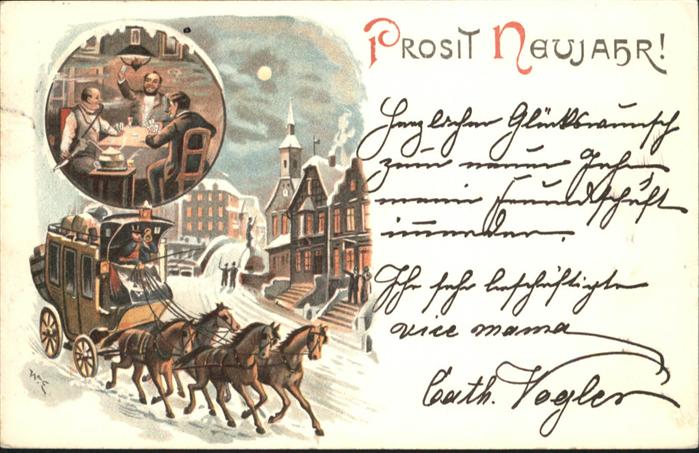 Prosit Neujahr!
Herzlichen Glückswunsch
zum neuen Jahr
meine Freundschaft
Ihr sehr beschäftigte
vice mama
Cath. Vogler